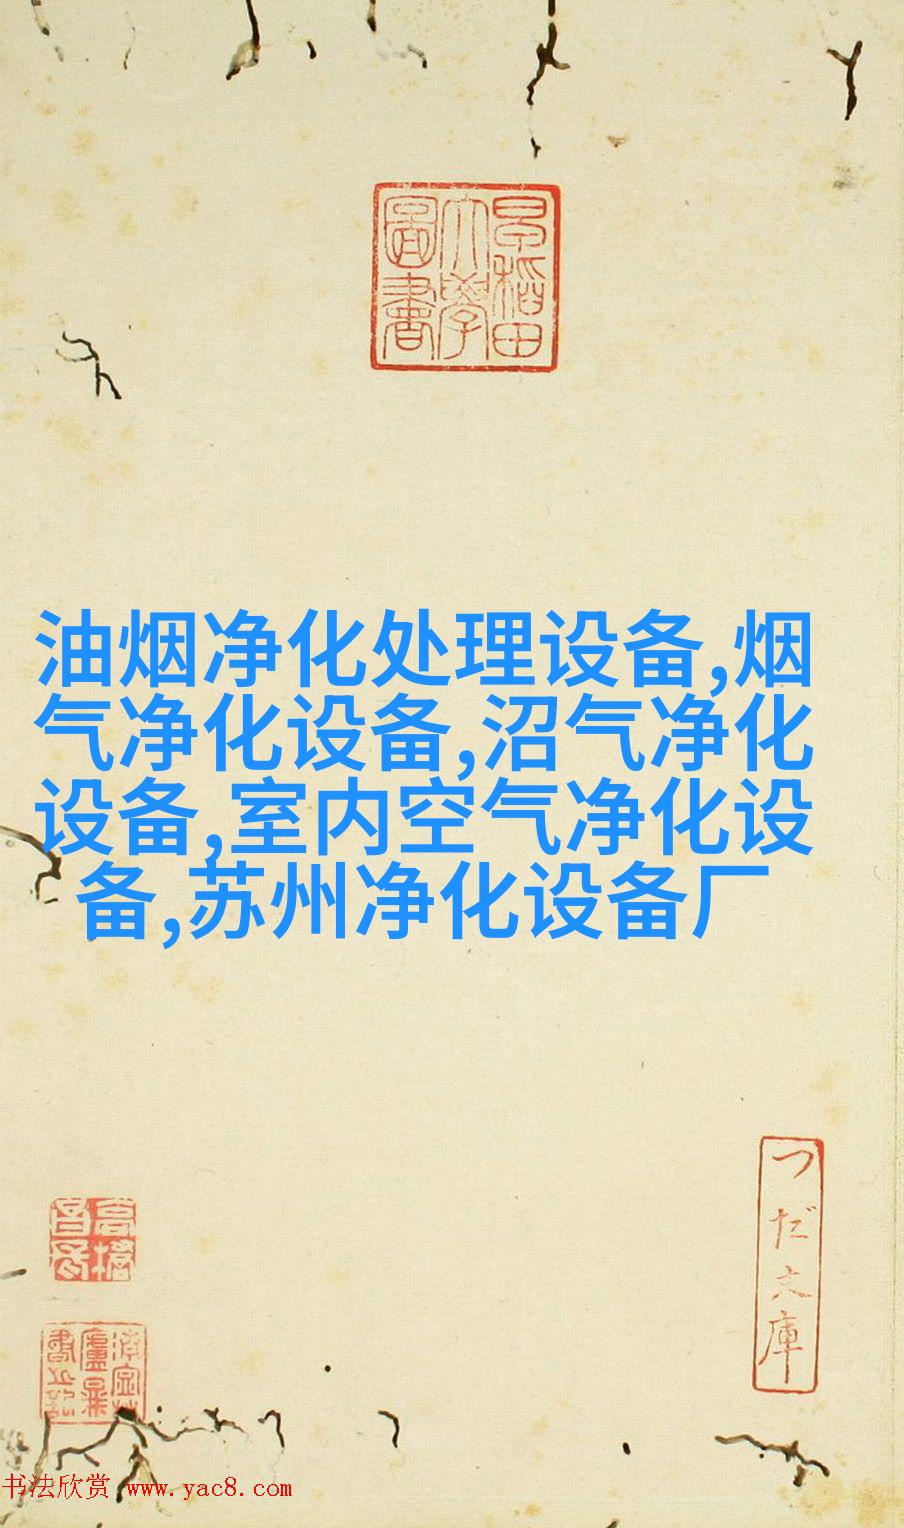 早稻田
大學
圖書
油烟净化处理设备,烟
气净化设备,沼气净化
设备,室内空气净化设
备,苏州净化设备厂
つだ文庫
书法欣赏 www.yac8.com